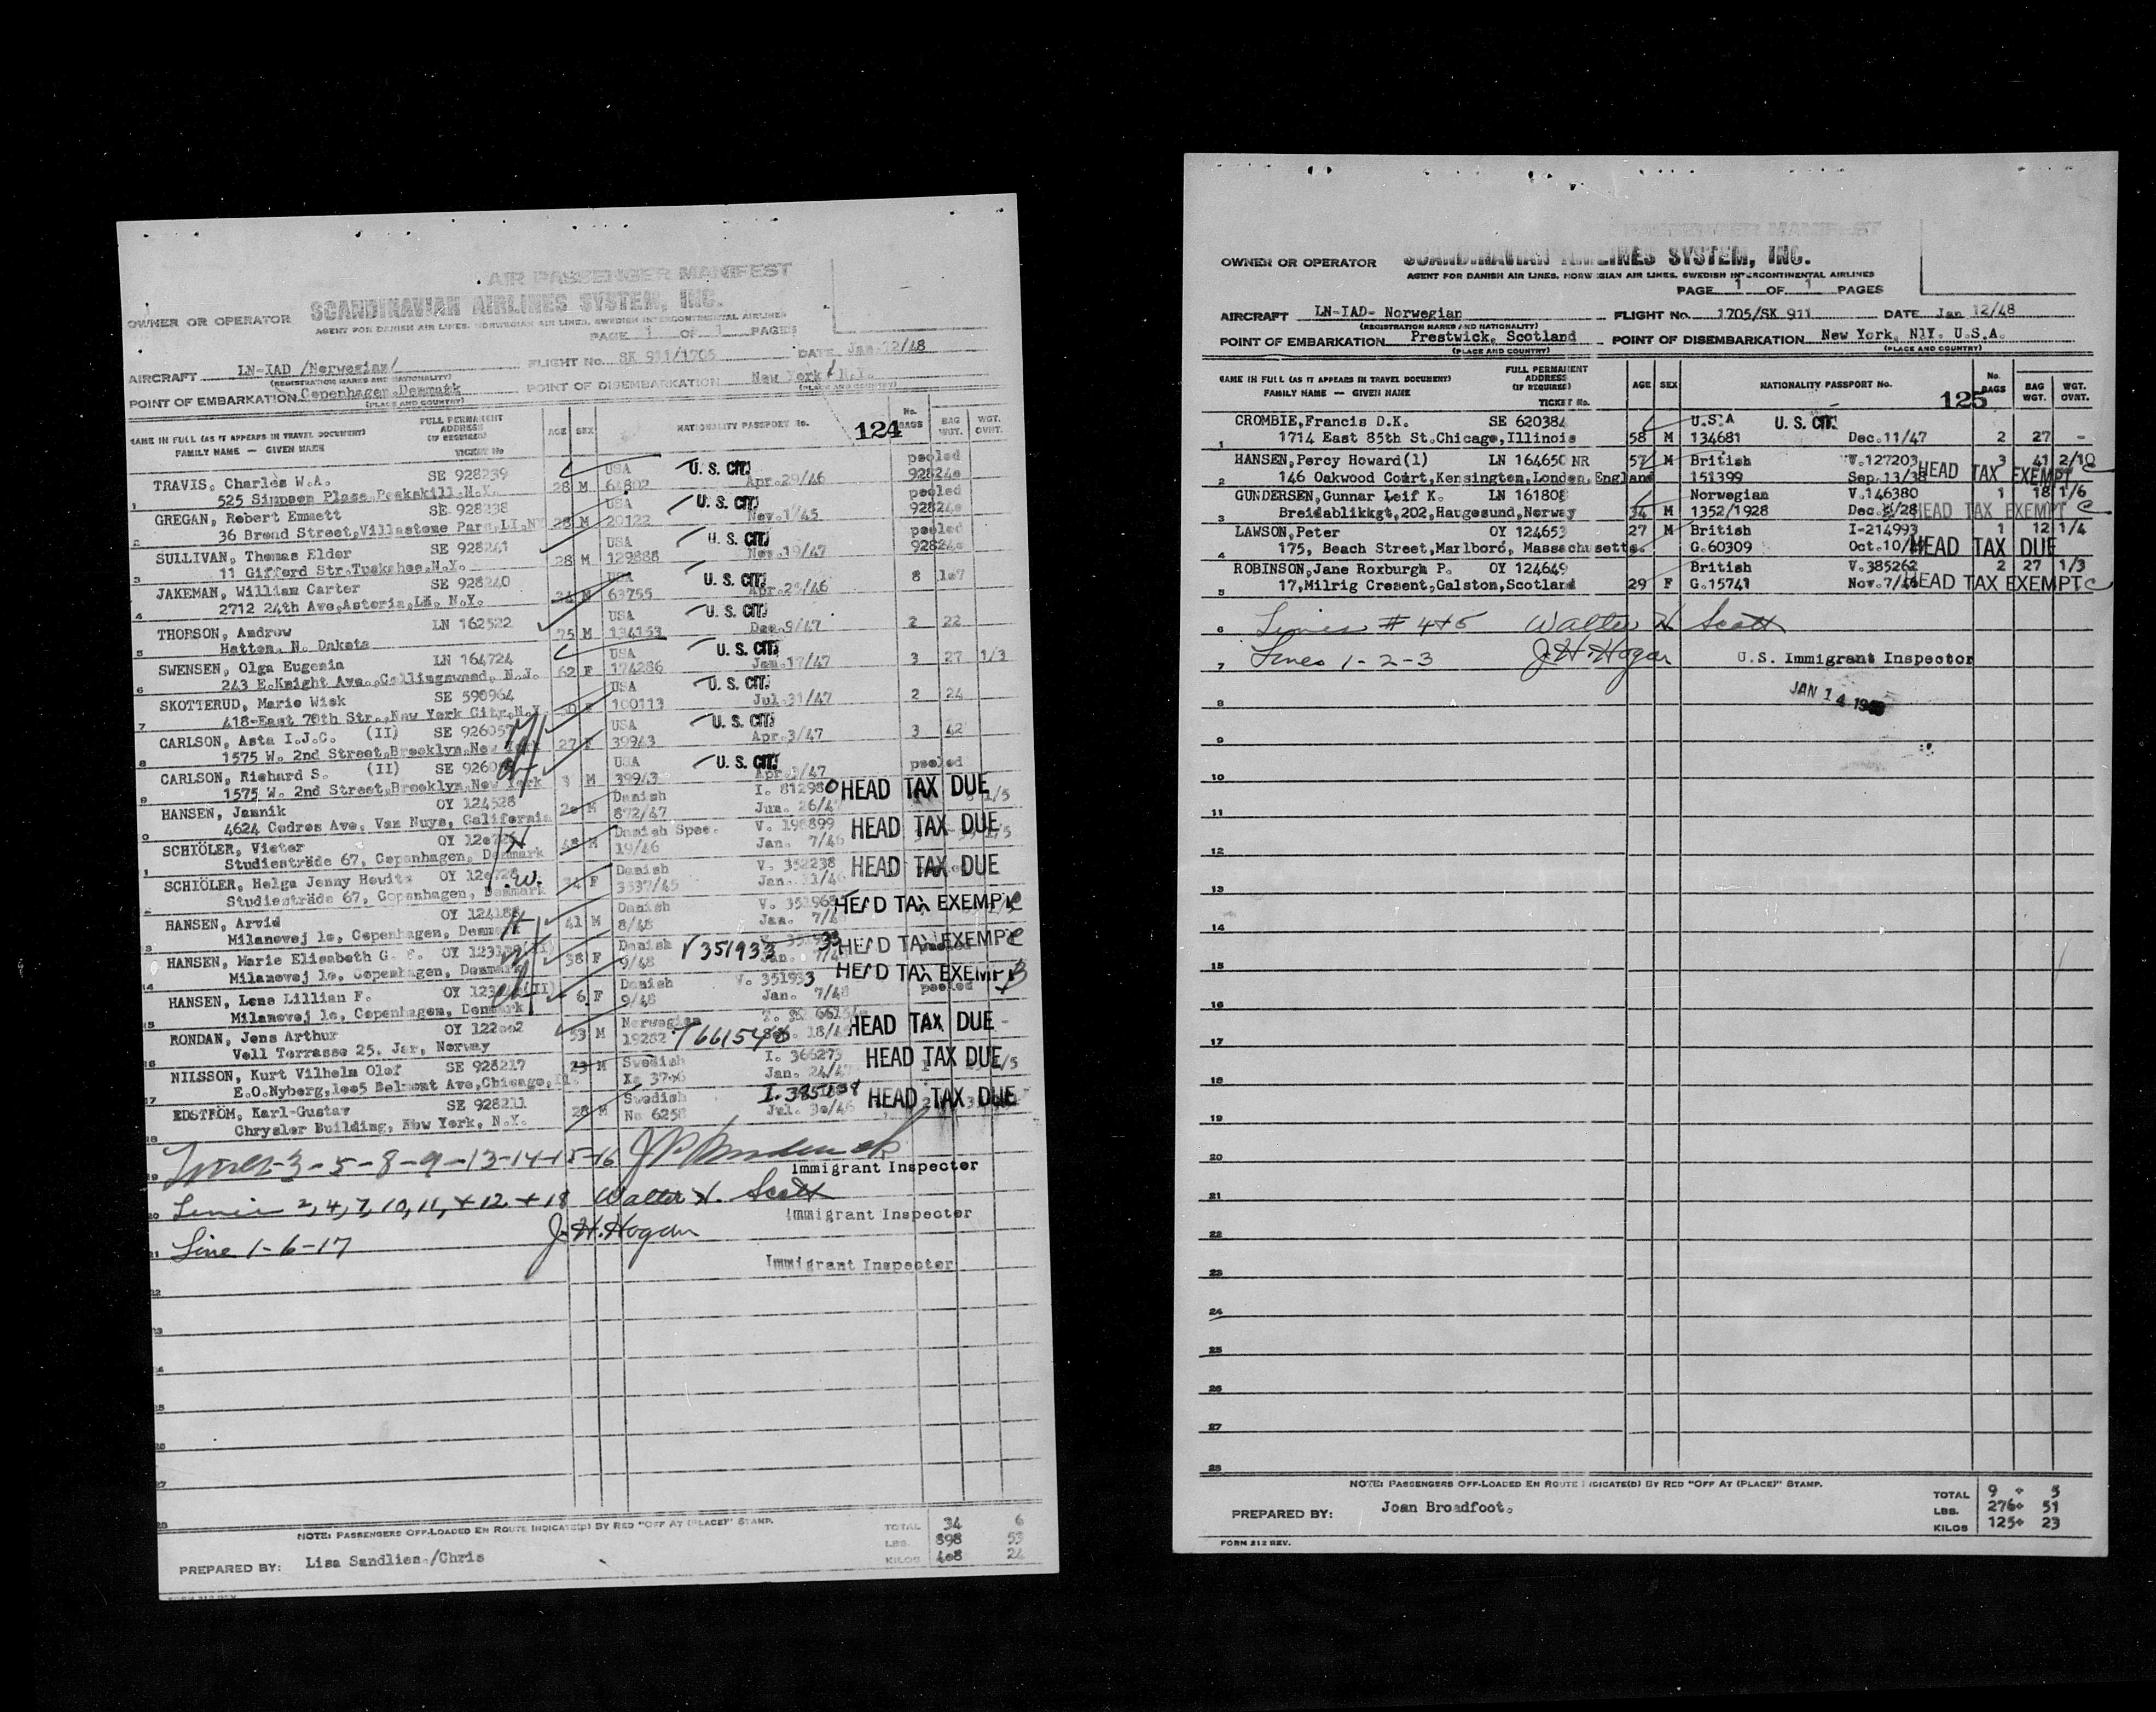 AIR PASSENGER MANIFEST
OWNER OR OPERATOR SCANDINAVIAN AIRLINES SYSTEM, INC.
AGENT FOR DANISH AIR LINES, NORWEGIAN AIR LINES, SWEDISH INTERCONTINENTAL AIRLINES
PAGE 1 OF 1 PAGES
AIRCRAFT LN-IAD /Norwegian/ FLIGHT No. SK 911/1705 DATE Jan.12/48
(REGISTRATION MARKS AND NATIONALITY)
POINT OF EMBARKATION Copenhagen.Denmark POINT OF DISEMBARKATION New York, N.Y.
(PLACE AND COUNTRY) (PLACE AND COUNTRY)
NAME IN FULL (AS IT APPEARS IN TRAVEL DOCUMENT) FULL PERMANENT ADDRESS (IF REQUIRED) AGE SEX NATIONALITY PASSPORT No. 124 No. BAGS BAG WGT. WGT. OVNT.
FAMILY NAME — GIVEN NAME TICKET No
TRAVIS, Charles W.A. SE 928239 USA U. S. CIT. pooled
1 525 Simpson Place,Peekskill.N.Y. 28 M 64802 Apr.29/46 928240
GREGAN, Robert Emmett SE 928238 USA U. S. CIT. pooled
2 36 Brond Street,Villastone Parc,LI.NY 28 M 20122 Nov.1/45 928240
SULLIVAN, Thomas Elder SE 928241 USA U. S. CIT. pooled
3 11 Gifford Str.Tuckahoe.N.Y. 28 M 129888 Nov.19/47 928240
JAKEMAN, William Carter SE 928240 USA U. S. CIT. 8 107
4 2712 24th Ave,Astoria,LI. N.Y. 34 M 63755 Apr.25/46
THORSON, Andrew LN 162522 USA U. S. CIT.
5 Hatton. N. Dakota 75 M 134153 Dec.9/47 2 22
SWENSEN, Olga Eugenia LN 164724 USA U. S. CIT.
6 243 E.Knight Ave.,Collingswood, N.J. 62 F 174286 Jan.17/47 3 27 1/3
SKOTTERUD, Marie Wick SE 590964 USA U. S. CIT.
7 418-East 70th Str.,New York City,N.Y. F 100113 Jul.31/47 2 24
CARLSON, Asta I.J.C. (II) SE 926057 USA U. S. CIT.
8 1575 W. 2nd Street,Brooklyn,New York 27 F 39943 Apr.3/47 3 42
CARLSON, Richard S. (II) SE USA U. S. CIT. pooled
9 1575 W. 2nd Street,Brooklyn,New York 3 M 39943 Apr.3/47
HANSEN, Jannik OY 124528 Danish I. 812980 HEAD TAX DUE 1/5
0 4624 Cedros Ave, Van Nuys, California 20 M 872/47 Jun. 26/47
SCHIÖLER, Victor OY Danish Spec. V. 198899 HEAD TAX DUE 1/5
1 Studiesträde 67, Copenhagen, Denmark 48 M 19/46 Jan. 7/46
SCHIÖLER, Helga Jenny Howitz OY Danish V. 352238 HEAD TAX DUE
Studiesträde 67, Copenhagen, Denmark 34 F 3537/45 Jan. 31/46
HANSEN, Arvid OY Danish HEAD TAX EXEMPT C
13 Milanovej 10, Copenhagen, Denmark 41 M 8/48 Jan. 7/48
HANSEN, Marie Elisabeth G. F. OY Danish V 351933 HEAD TAX EXEMPT C
14 Milanovej 10, Copenhagen, Denmark 38 F 9/48 Jan. 7/48
HANSEN, Lone Lillian F. OY (II) Danish V. 351933 HEAD TAX EXEMPT B pooled
15 Milanovej 10, Copenhagen, Denmark 6 F 9/48 Jan. 7/48
RONDAN, Jens Arthur OY 122002 Norwegian HEAD TAX DUE
16 Voll Terrasse 25. Jar, Norway 53 M 19282 18/4
NILSSON, Kurt Vilhelm Olof SE 928217 Swedish I. 366273 HEAD TAX DUE 1/5
17 E.O.Nyberg,1005 Belmont Ave,Chicago,Il. 23 M Jan. 24/47
EDSTRÖM, Karl-Gustav SE 928211 Swedish HEAD TAX DUE
18 Chrysler Building, New York, N.Y. 28 M No 6258 Jul. 30/46
19 Lines-3-5-8-9-13-14-15-16
Immigrant Inspector
20 Lines 2, 4, 7, 10, 11, + 12 + 18 Walter H. Scott
Immigrant Inspector
21 Line 1-6-17 J.H.Hogan
Immigrant Inspector
22
23
24
25
26
27
28
NOTE: PASSENGERS OFF-LOADED EN ROUTE INDICATE(D) BY RED "OFF AT (PLACE)" STAMP.
TOTAL 34 6
LBS. 898 53
KILOS 408 24
PREPARED BY: Lisa Sandlien./Chris
FORM 212 REV.
PASSENGER MANIFEST
OWNER OR OPERATOR SCANDINAVIAN AIRLINES SYSTEM, INC.
AGENT FOR DANISH AIR LINES, NORWEGIAN AIR LINES, SWEDISH INTERCONTINENTAL AIRLINES
PAGE 1 OF 1 PAGES
AIRCRAFT LN-IAD- Norwegian FLIGHT No. 1705/SK 911 DATE Jan 12/48
(REGISTRATION MARKS AND NATIONALITY)
POINT OF EMBARKATION Prestwick, Scotland POINT OF DISEMBARKATION New York, N1Y. U.S.A.
(PLACE AND COUNTRY) (PLACE AND COUNTRY)
NAME IN FULL (AS IT APPEARS IN TRAVEL DOCUMENT) FULL PERMANENT ADDRESS (IF REQUIRED) AGE SEX NATIONALITY PASSPORT No. 125 No. BAGS BAG WGT. WGT. OVNT.
FAMILY NAME — GIVEN NAME TICKET No.
CROMBIE,Francis D.K. SE 620384 U.S.A U. S. CIT.
1 1714 East 85th St.Chicago,Illinois 58 M 134681 Dec.11/47 2 27 -
HANSEN,Percy Howard(1) LN 164650 NR 57 M British V.127203 3 41 2/10
2 146 Oakwood Court,Kensington,London,England 151399 Sep.13/38 HEAD TAX EXEMPT C
GUNDERSEN,Gunnar Leif K. LN 161808 Norwegian V.146380 1 18 1/6
3 Breidablikkgt,202,Haugesund,Norway 34 M 1352/1928 HEAD TAX EXEMPT C
LAWSON,Peter OY 124653 27 M British I-214993 1 12 1/4
4 175, Beach Street,Marlboro, Massachusetts. G.60309 Oct.10/ HEAD TAX DUE
ROBINSON,Jane Roxburgh P. OY 124649 British V.385262 2 27 1/3
5 17,Milrig Cresent,Galston,Scotland 29 F G.15741 Nov.7/46 HEAD TAX EXEMPT C
6 Lines # 4+5 Walter H Scott
7 Lines 1-2-3 J.H.Hogan U.S. Immigrant Inspector
JAN 14 1948
8
9
10
11
12
13
14
15
16
17
18
19
20
21
22
23
24
25
26
27
28
NOTE: PASSENGERS OFF-LOADED EN ROUTE INDICATE(D) BY RED "OFF AT (PLACE)" STAMP.
TOTAL 9 + 5
LBS. 276+ 51
KILOS 125+ 23
PREPARED BY: Joan Broadfoot.
FORM 212 REV.